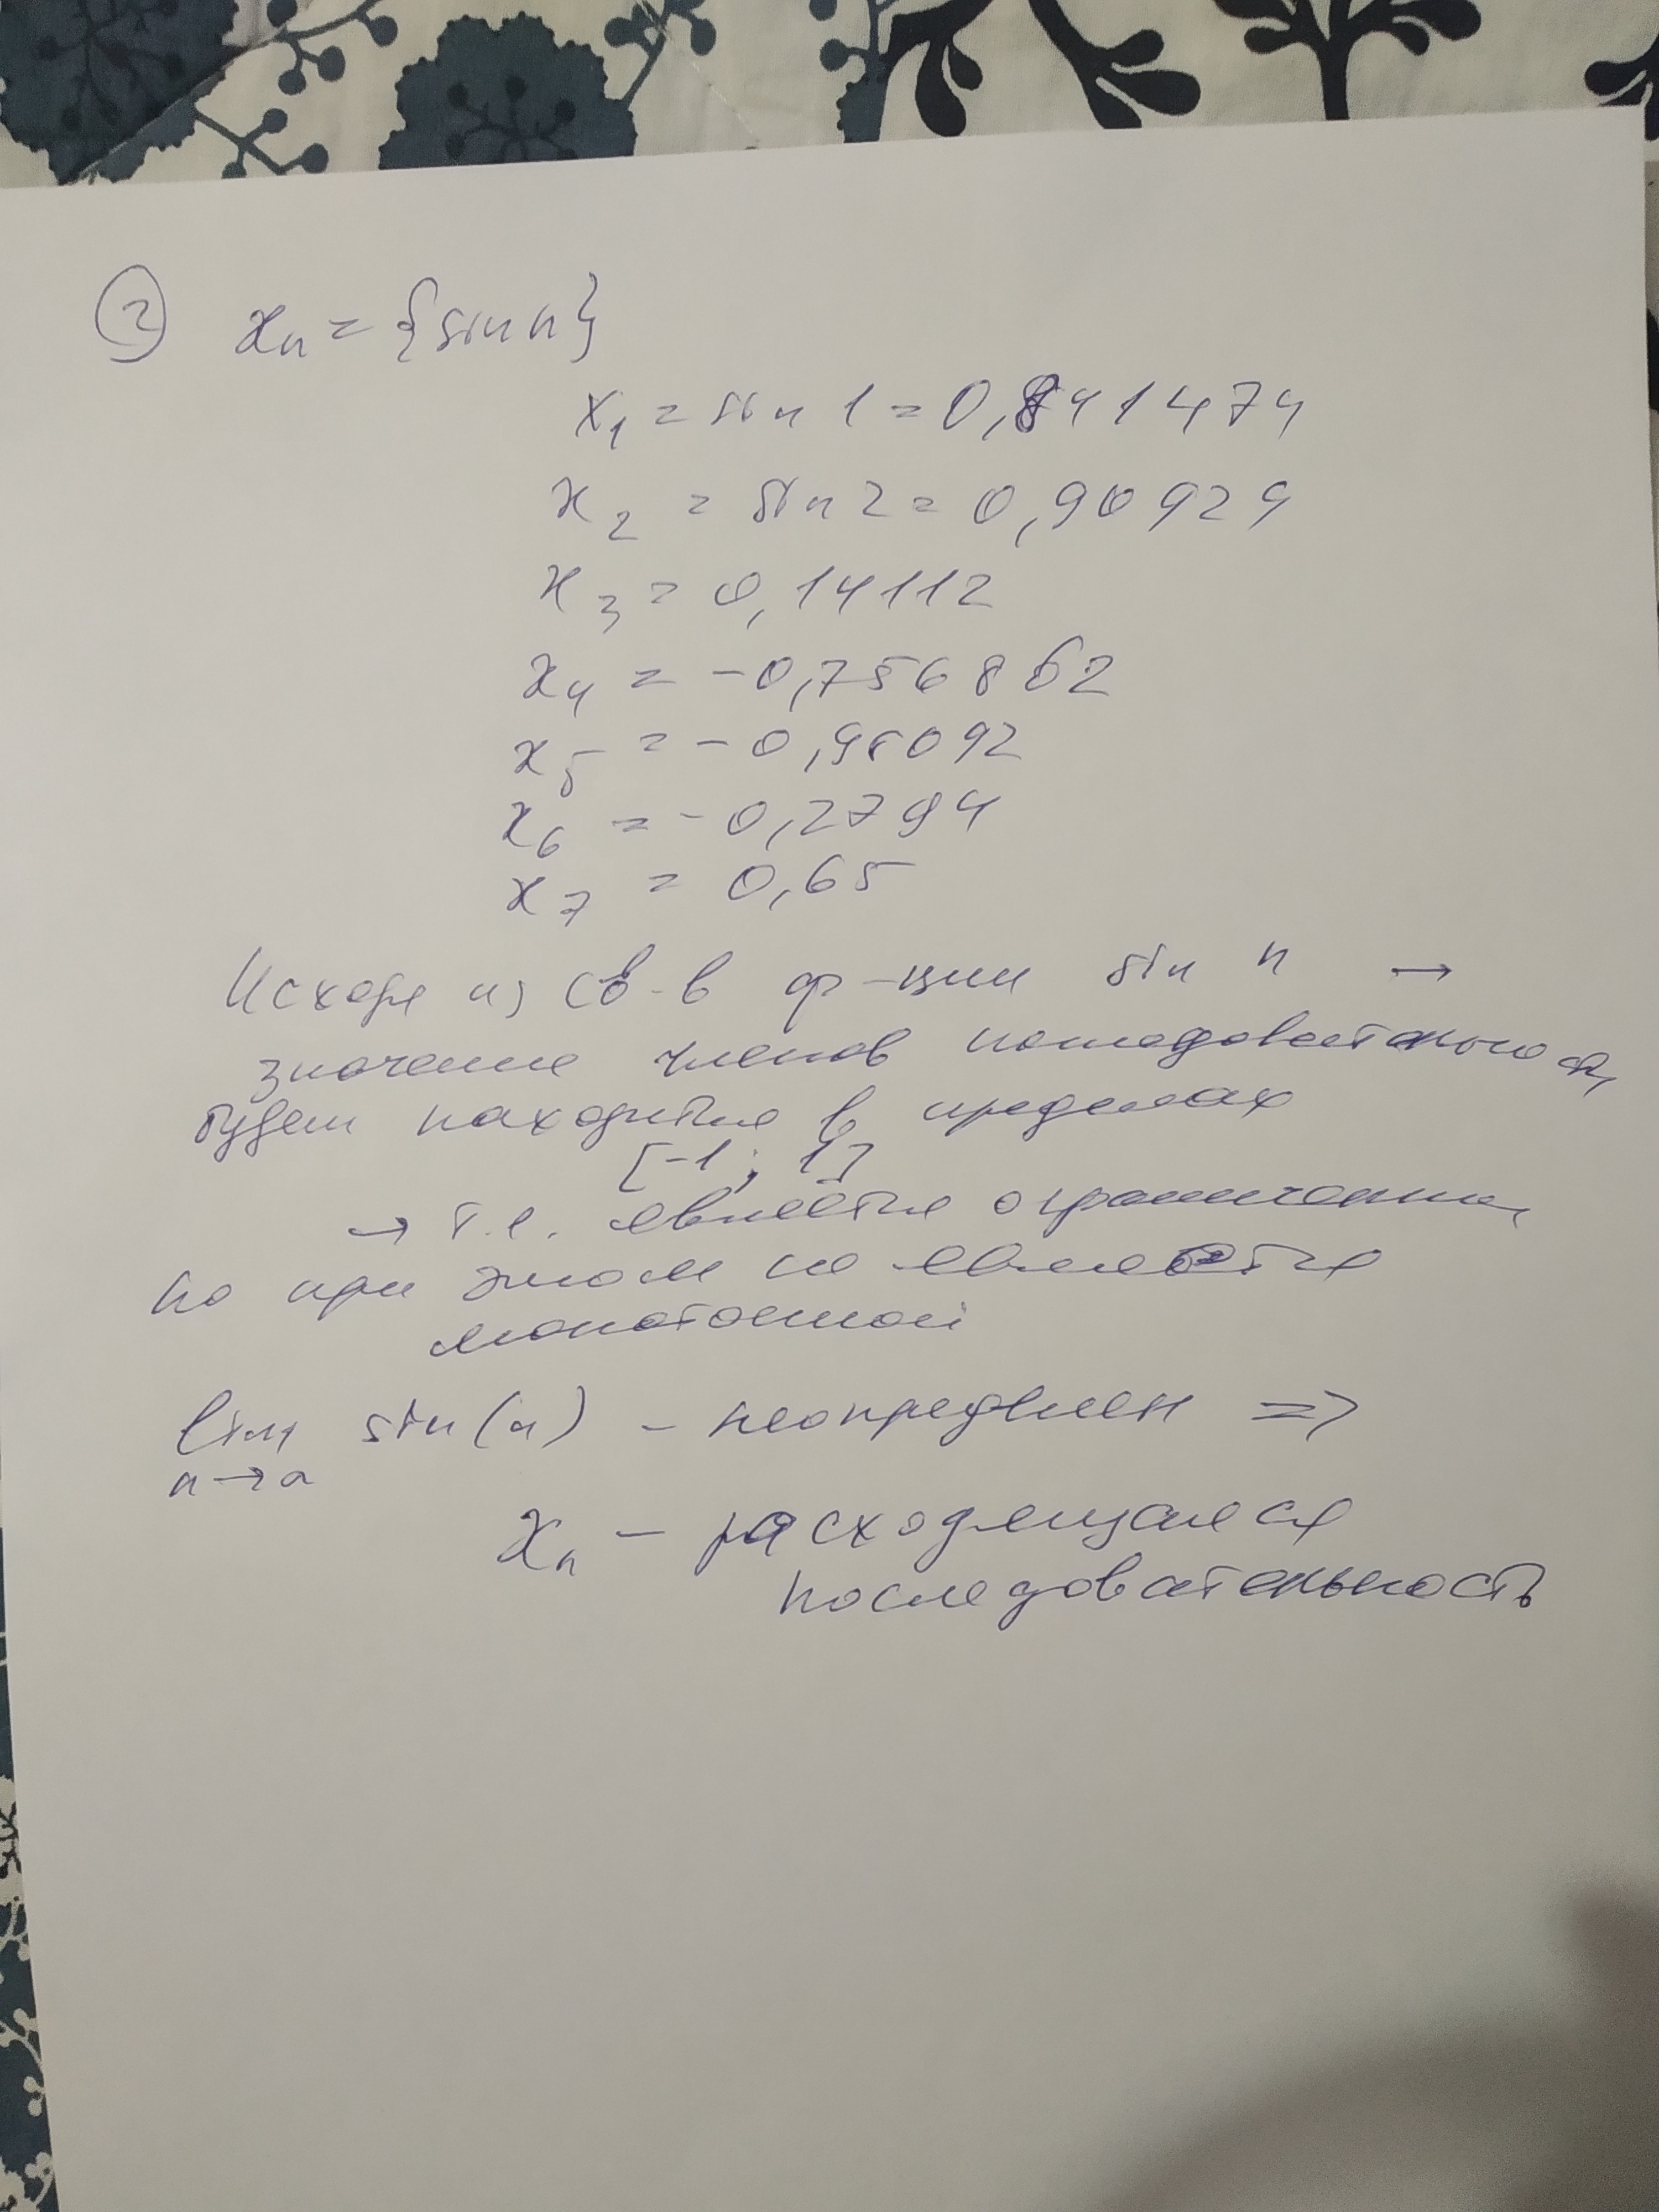 ② xn = {sin n}
x1 = sin 1 = 0,841474
x2 = sin 2 = 0,90929
x3 = 0,14112
x4 = -0,756862
x5 = -0,98092
x6 = -0,2794
x7 = 0,65
Исходя из св-в ф-ции sin n →
значение членов последовательности,
будет находится в пределах
[-1; 1]
→ т.е. является ограниченной,
но при этом не является
монотонной
lim sin(n) - неопределен =>
n→a
xn - расходящаяся
последовательность